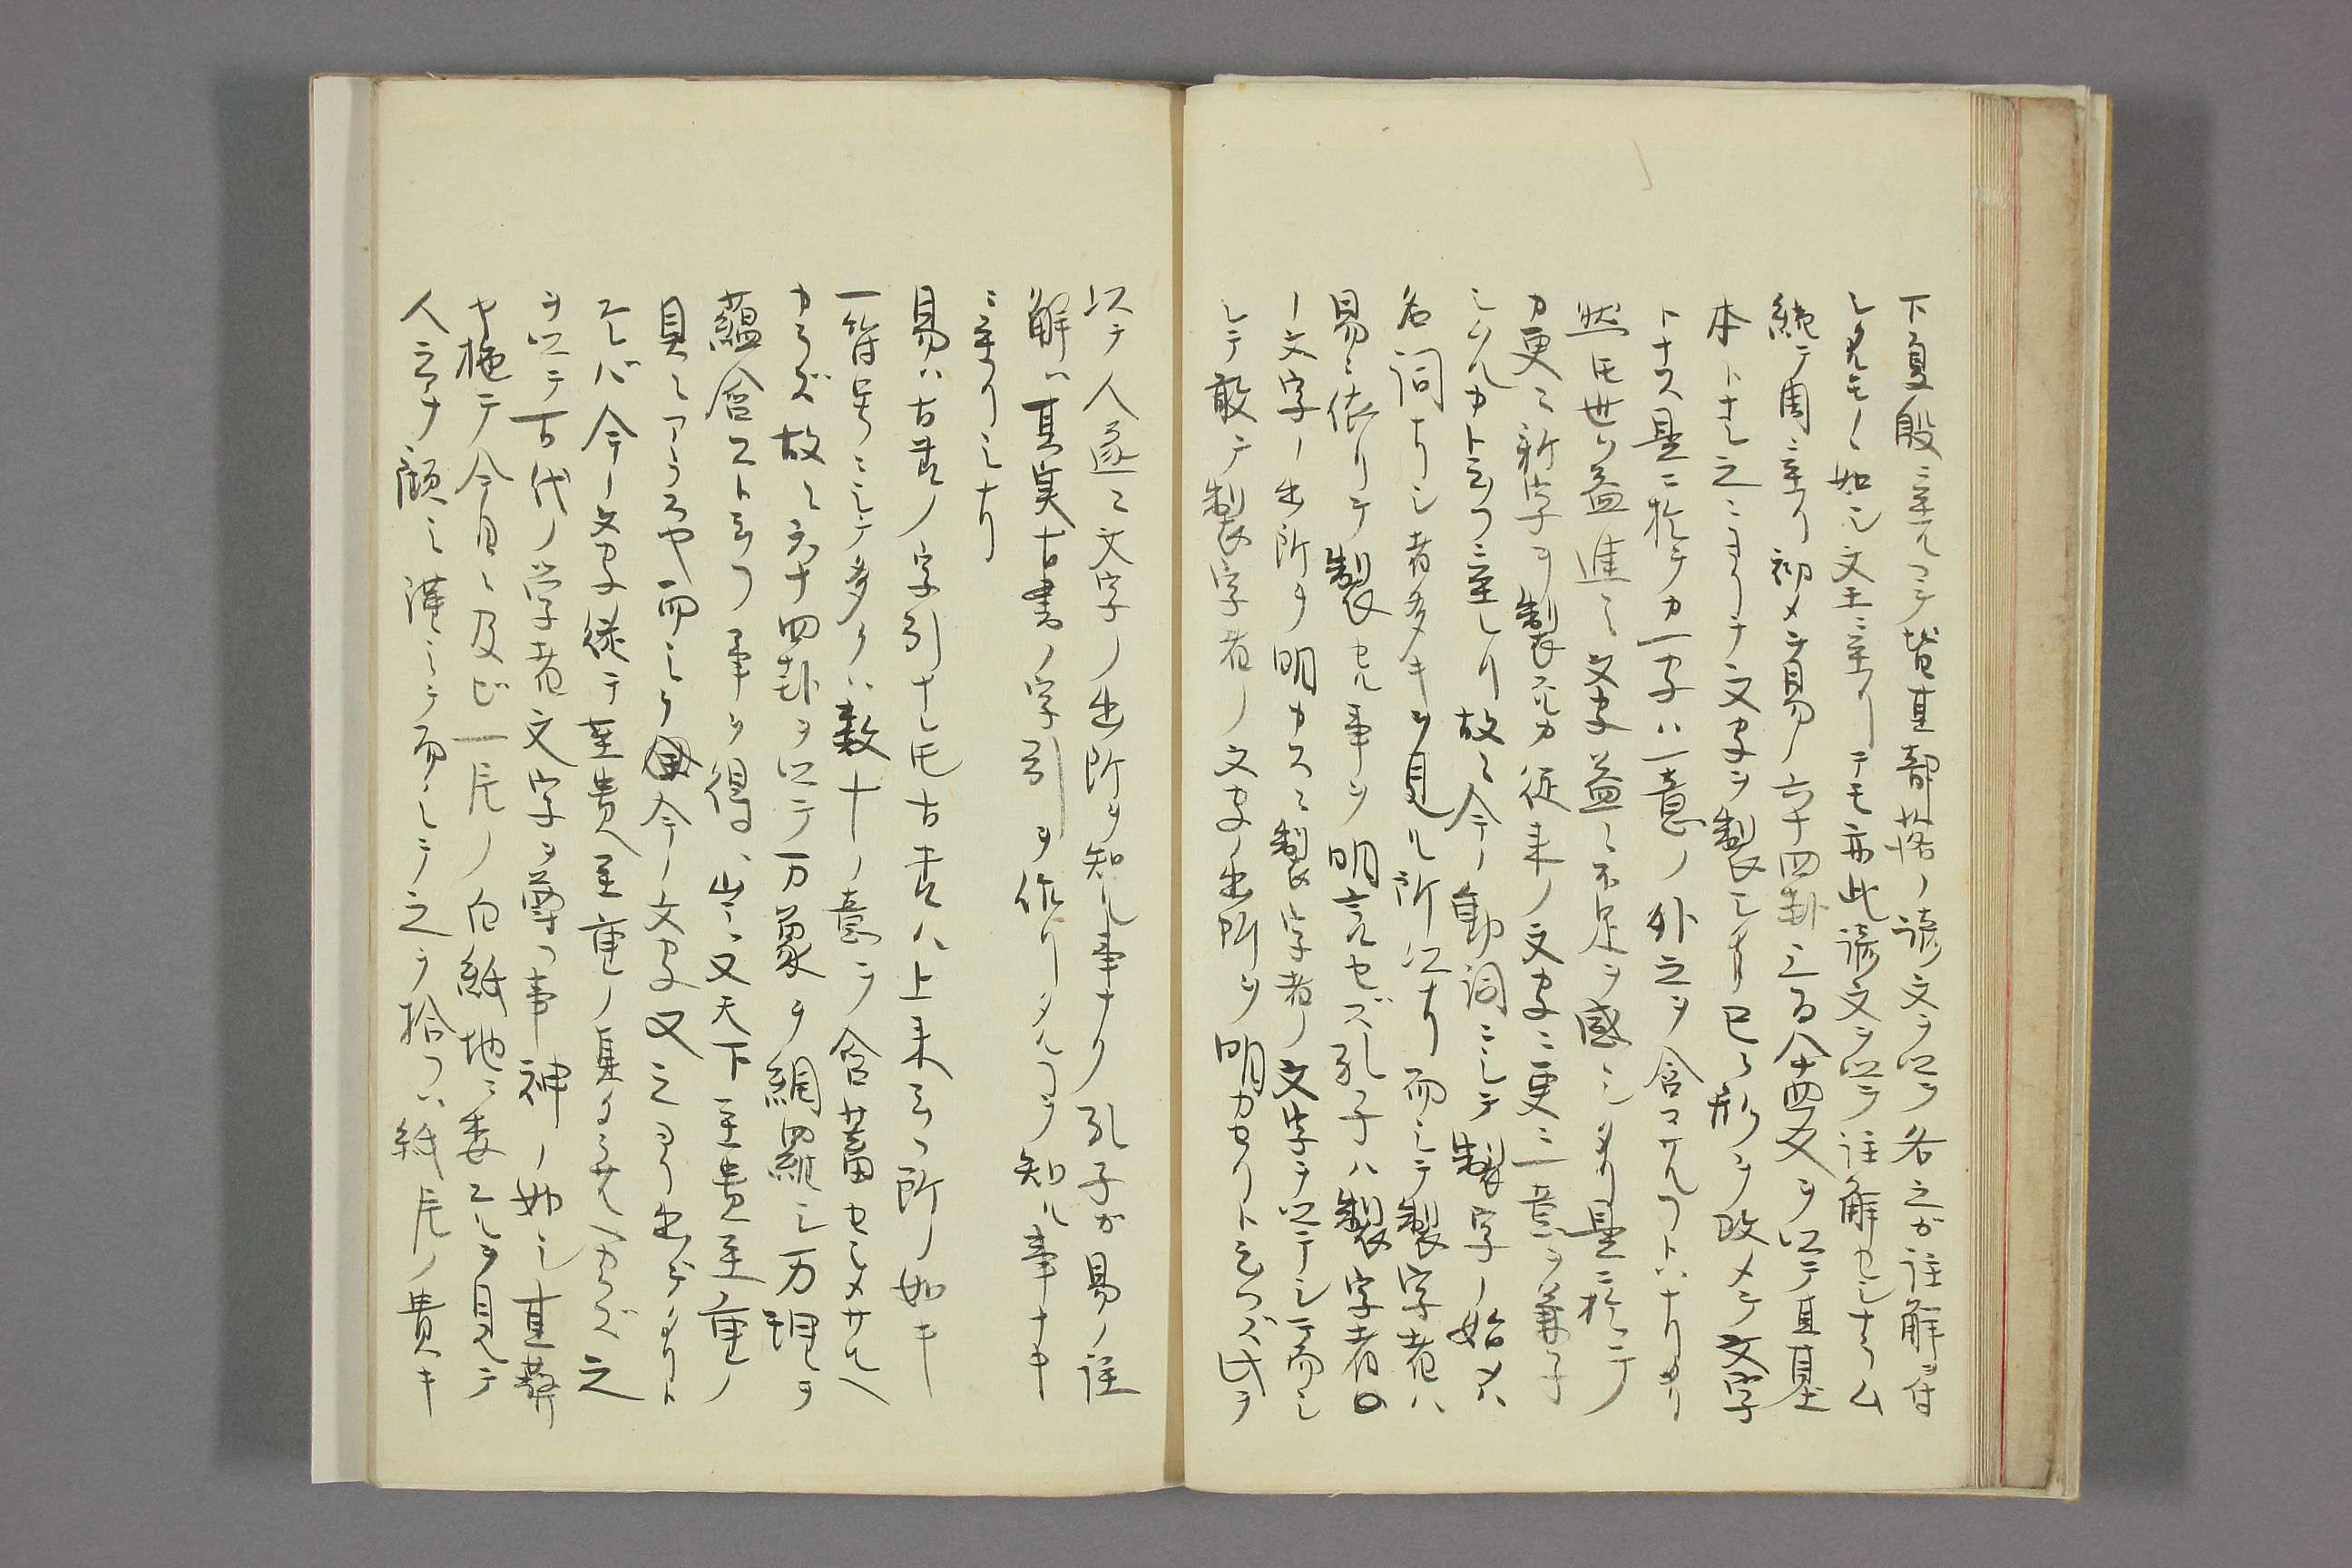 下夏殷ニ至ルマデ皆其部落ノ諺文ヲ以テ各之が注解ヲ付
シタルモノヽ如シ文王ニ至リテモ亦此諺文ヲ以テ注解セシナラム
続テ周ニ至リ初メテ易ノ六十四卦三百八十四爻ヲ以テ其基
本トナシ之ニヨリテ文字ヲ製シ其已ノ形ヲ改メテ文字
トナス是ニ於テカ一字ハ一意ノ外之ヲ含マサルコトハナリタリ
然モ世ノ益進ミ文字益々不足ヲ感シタリ是ニ於テ
カ更ニ新字ヲ製スルカ従来ノ文字ニ更ニ一意ヲ兼子
シムルカト云フニ至レリ故ニ今ノ動詞ニシテ製字ノ始メハ
名詞ナリシ者多キヲ見ル所以ナリ而シテ製字者ハ
易ニ依リテ製セル事ヲ明言セズ孔子ハ製字者ノ
ノ文字ノ出所ヲ明カスニ製字者ノ文字ヲ以テシ而シ
シテ敢テ製字者ノ文字ノ出所ヲ明カセリト云ハズ此ヲ
以テ人遂ニ文字ノ出所ヲ知ル事ナク孔子が易ノ註
解ハ其実古書ノ字引ヲ作リタルコヲ知ル事ナキ
ニ至リシナリ
易ハ古昔ノ字引ナレ𪜈古書ハ上来云フ所ノ如キ
一符号ニシテ多クハ数十ノ意ヲ含蓄セシメサルベ
カラズ故ニ六十四卦ヲ以テ万象ヲ網羅シ万理ヲ
蘊含スト云フ事ヲ得ハ豈ニ又天下至貴至重ノ
具ニアラスヤ而シテ今ノ文字又之ヨリ出デタリト
スレバ今ノ文字従テ至貴至重ノ具タラサルベカラズ之
ヲ以テ古代ノ学者文字ヲ尊フ事神ノ如シ其弊
ヤ施テ今日ニ及ビ一片ノ白紙地ニ委スルヲ見テ
人之ヲ顧ミ謹ミテ而シテ之ヲ拾フハ紙片ノ貴キ